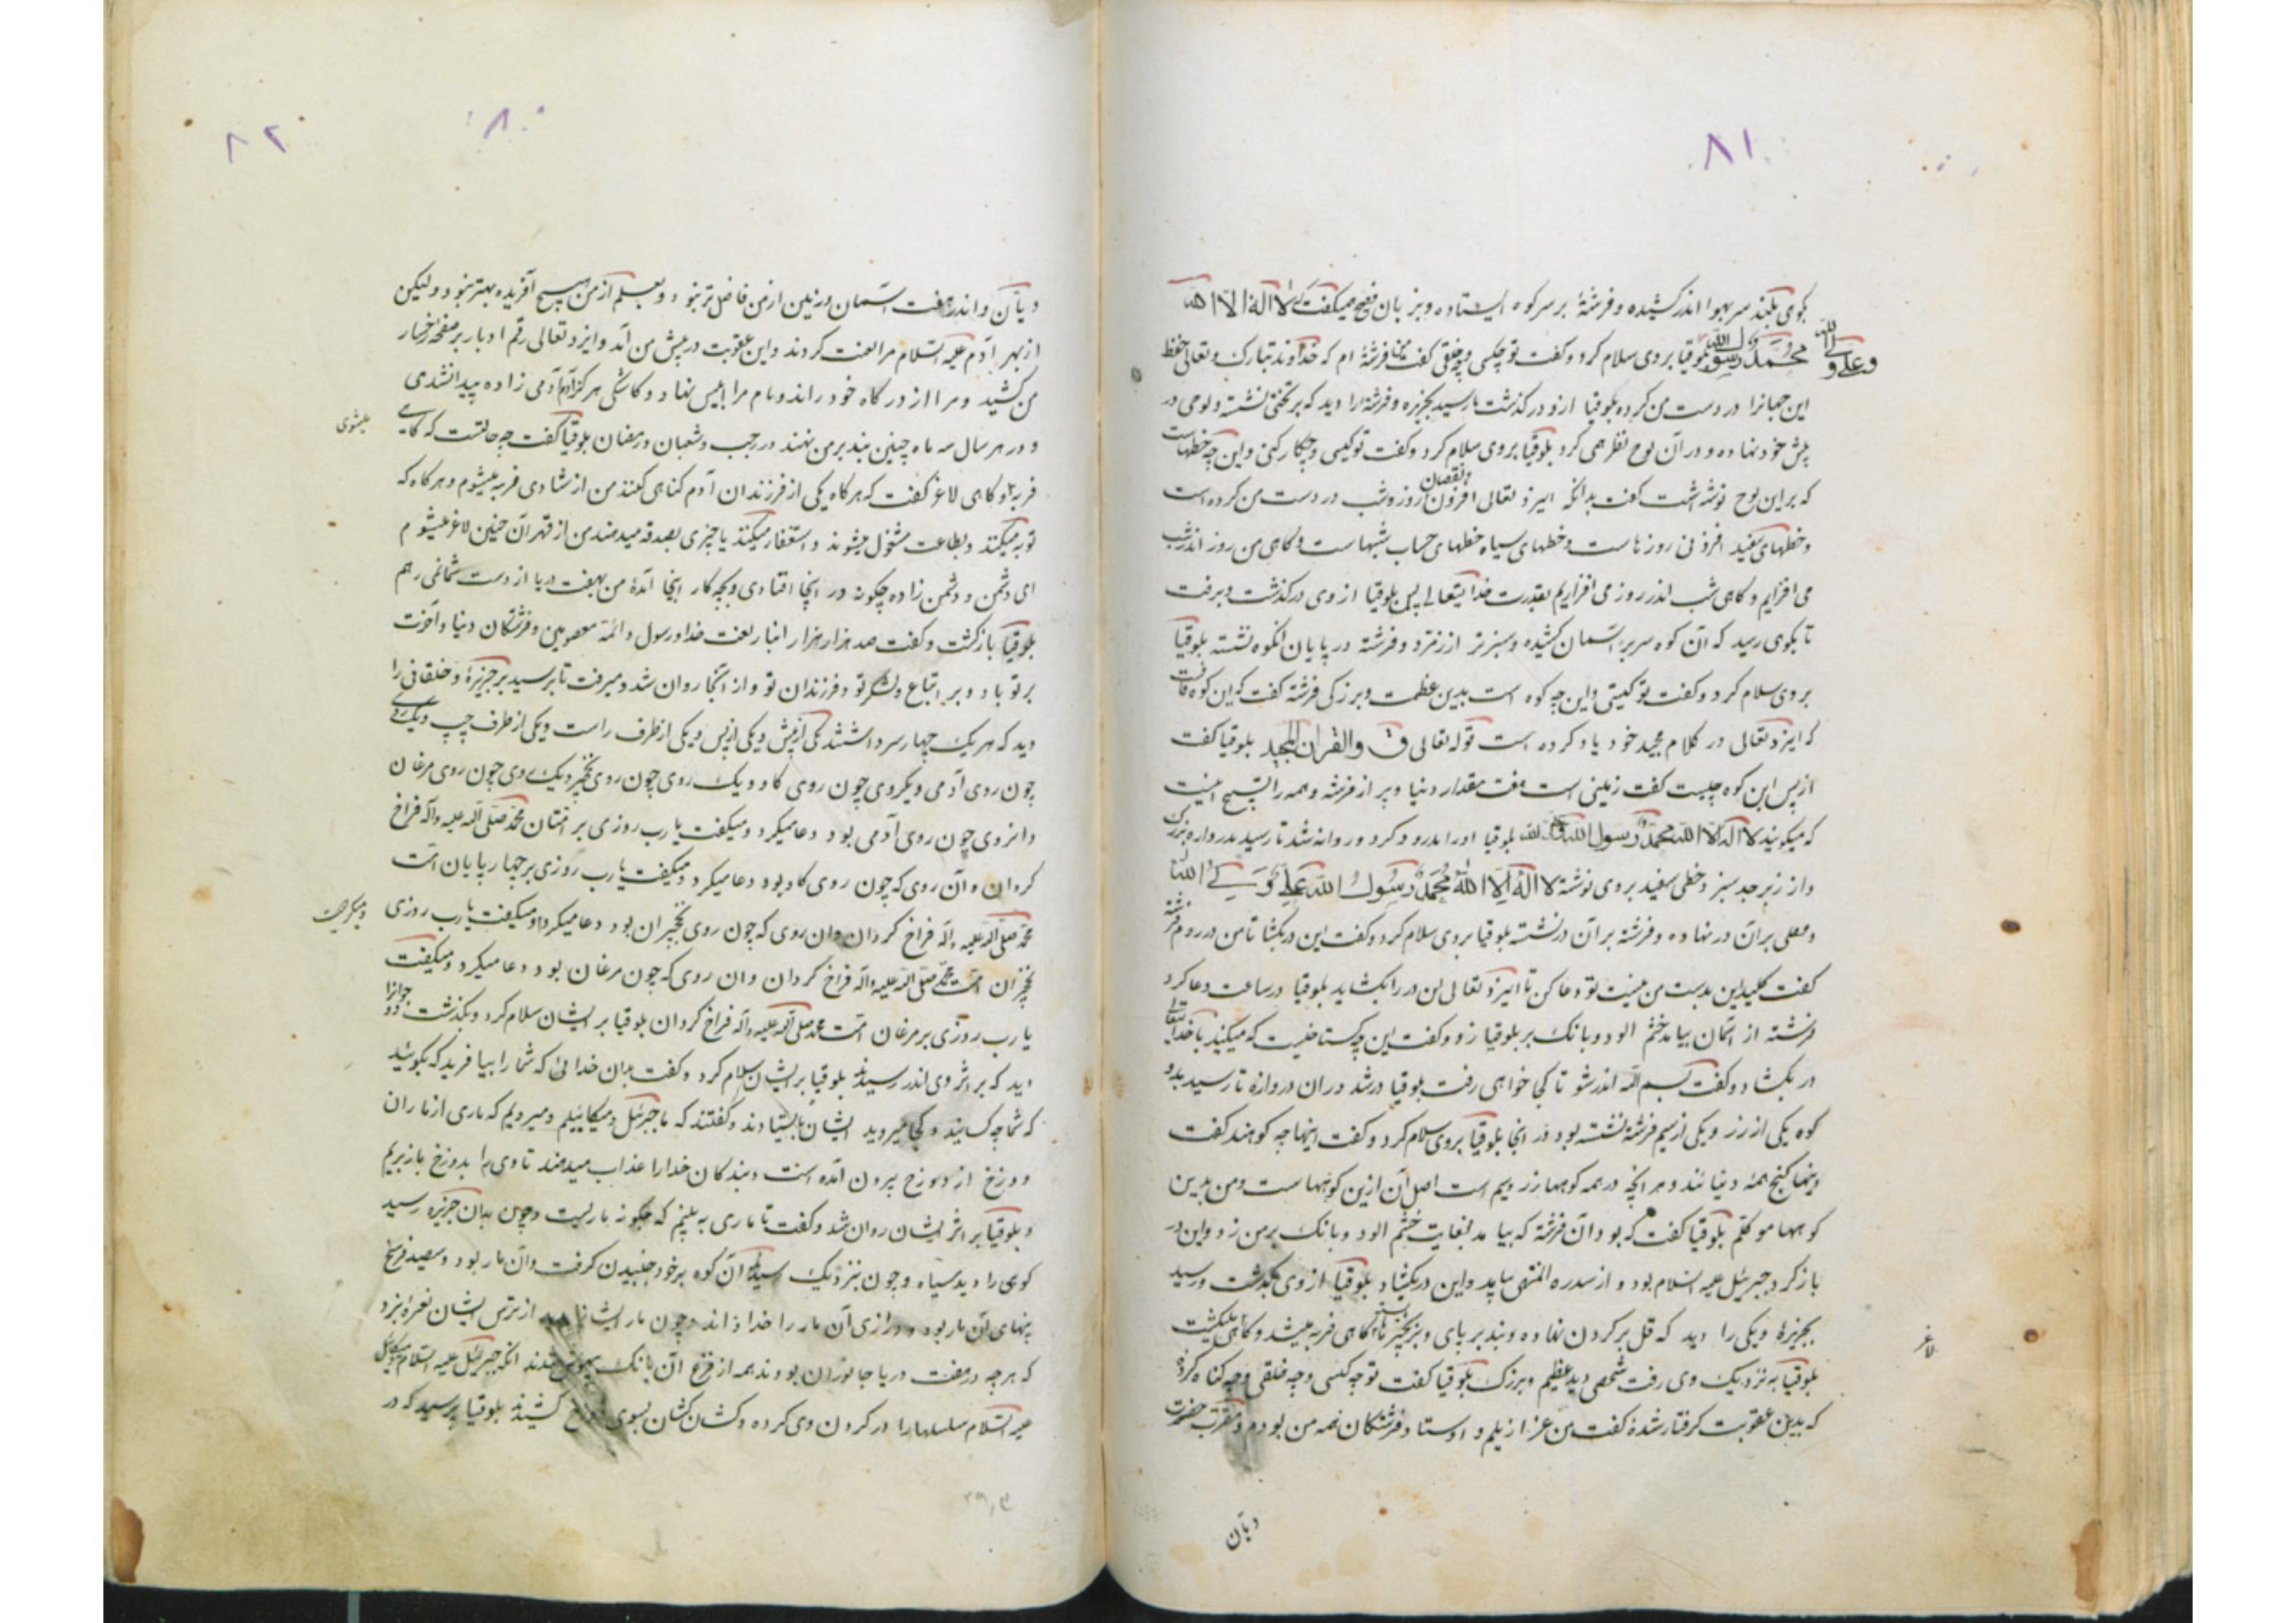 ۸۱
کوهی بلند سر بهوا اندر کشیده و فرشتهٔ بر سر کوه ایستاده و بزبان فصیح میکفت که لا اله الا الله
محمد رسول الله وعلی ولی الله بلوقیا بروی سلام کرد و کفت تو چکسی و چه خلقی کفت من فرشتهٔ ام که خداوند تبارک و تعالی حفظ
این جهانرا در دست من کرده بلوقیا ازو در کذشت تا رسید بجزیره و فرشتهٔ را دید که بر تختی نشسته و لوحی در
پیش خود نهاده و در آن لوح نظر همی کرد بلوقیا بروی سلام کرد و کفت تو کیستی و چکار کنی و این چه خطهاست
که بر این لوح نوشته است کفت بدانکه ایزد تعالی افزون و نقصان روز و شب در دست من کرده است
و خطهای سفید افزونی روزهاست و خطهای سیاه خطهای حساب شبهاست و کاهی من روز اندر شب
می افزایم و کاهی شب اندر روز می افزایم بقدرت خدایتعالی پس بلوقیا از وی در کذشت و برفت
تا بکوهی رسید که آن کوه سر بر آسمان کشیده و سبزتر از زمرد و فرشته در پایان انکوه نشسته بلوقیا
بروی سلام کرد و کفت تو کیستی و این چه کوه است بدین عظمت و بزرکی فرشته کفت که این کوه قافست
که ایزد تعالی در کلام مجید خود یاد کرده است قوله تعالی ق والقران المجید بلوقیا کفت
از پس این کوه چیست کفت زمینی است هفت مقدار دنیا و پر از فرشته و همه را تسبیح اینست
که میکویند لا اله الا الله محمد رسول الله علی ولی الله بلوقیا او را بدرود کرد و روانه شد تا رسید بدروازه بزرک
و از زبرجد سبز و خطی سفید بروی نوشته لا اله الا الله محمد رسول الله علی ولی الله
و قفلی بر آن در نهاده و فرشته بر آن در نشسته بلوقیا بروی سلام کرد و کفت این در بکشا تا من در روم فرشته
کفت کلید این بدست من نیست تو دعا کن تا ایزد تعالی این در را بکشاید بلوقیا در ساعت دعا کرد
فرشته از آسمان بیامد خشم الود و بانک بر بلوقیا زد و کفت این چه کستاخیست که میکنید با خدایتعالی
در بکشاد و کفت بسم الله اندر شو تا کجا خواهی رفت بلوقیا در شد در ان دروازه تا رسید بدو
کوه یکی از زر و یکی از سیم فرشته نشسته بود در انجا بلوقیا بروی سلام کرد و کفت اینها چه کوهند کفت
اینها کنج همه دنیااند و هر انچه در همه کوهها زر و سیم است اصل آن ازین کوهها است و من بدین
کوهها موکلم بلوقیا کفت که بود آن فرشته که بیامد بغایت خشم الود و بانک بر من زد و این در
باز کرد جبرئیل علیه السلام بود و از سدره المنتهی بیامد و این در بکشاد بلوقیا از وی بکذشت و رسید
بجزیرهٔ و یکی را دید که غل بر کردن نهاده و بند بر پای و بزنجیر بسته کاهی فربه میشد و کاهی لاغر میکشت
لاغر
بلوقیا به نزدیک وی رفت شخصی دید عظیم و بزرک بلوقیا کفت تو چه کسی و چه خلقی و چه کناه کردهٔ
که بدین عقوبت کرفتار شدهٔ کفت من عزازیلم و اوستاد فرشتکان همه من بودم و مقرب حضرت
دیان
۸۲
۸۰
دیان و اندر هفت آسمان و زمین از من فاضل تر نبود و بعلم از من هیچ آفریده بهتر نبود ولیکن
از بهر آدم علیه السلام مرا لعنت کردند و این عقوبت در پیش من آمد و ایزد تعالی رقم ادبار بر صفحه رخسار
من کشید و مرا از درکاه خود راند و نام مرا ابلیس نهاد و کاشکی هرکز آدم و آدمی زاده پیدا نشدی
و در هر سال سه ماه چنین بند بر من نهند در رجب و شعبان و رمضان بلوقیا کفت چه حالتست که کاهی
میشوی
فربه و کاهی لاغر کفت که هرکاه یکی از فرزندان آدم کناهی کند من از شادی فربه میشوم و هرکاه که
توبه میکنند و بطاعت مشغول میشوند و استغفار میکنند یا چیزی بصدقه میدهند من از قهر آن چنین لاغر میشوم
ای دشمن و دشمن زاده چکونه در اینجا افتادی و بچه کار اینجا آمدهٔ من بهفت دریا از دست شما نمی رهم
بلوقیا بازکشت و کفت صد هزار هزار انبار لعنت خدا و رسول و ائمه معصومین و فرشتکان دنیا و آخرت
بر تو باد و بر اتباع و لشکر تو و فرزندان تو و از آنجا روان شد و میرفت تا برسید بر جزیرهٔ و خلقانی را
دید که هر یک چهار سر داشتند یکی از پیش و یکی از پس و یکی از طرف راست و یکی از طرف چپ و یک روی
چون روی آدمی و یکروی چون روی کاو و یک روی چون روی نخجیر و یک روی چون روی مرغان
و انروی چون روی آدمی بود دعا میکرد و میکفت یا رب روزی بر امتان محمد صلی الله علیه و آله فراخ
کردان و آن روی که چون روی کاو بود دعا میکرد و میکفت یا رب روزی بر چهارپایان امت
محمد صلی الله علیه و آله فراخ کردان و ان روی که چون روی نخجیران بود دعا میکرد و میکفت یا رب روزی
نخجیران امت محمد صلی الله علیه و آله فراخ کردان و ان روی که چون مرغان بود دعا میکرد و میکفت
یا رب روزی بر مرغان امت محمد صلی الله علیه و آله فراخ کردان بلوقیا بر ایشان سلام کرد و بکذشت دو جوانرا
دید که بر اثر وی اندر رسیدند بلوقیا بر ایشان سلام کرد و کفت بدان خدائی که شما را بیافرید که بکوئید
که شما چه کسانید و کجا میروید ایشان بایستادند و کفتند که ما جبرئیل و میکائیلیم و میرویم که ماری از ماران
دوزخ از دوزخ بیرون آمده است و بندکان خدا را عذاب میدهد تا وی را بدوزخ باز بریم
و بلوقیا بر اثر ایشان روان شد و کفت تا ماری به بینم که چکونه ماریست و چون بدان جزیره رسید
کوهی را دید سیاه و چون بنزدیک رسید آن کوه بر خود جنبیدن کرفت و آن مار بود و سیصد فرسخ
پنهای آن مار بود و درازی آن مار را خدا داند و چون مار ایشانرا بدید از ترس ایشان نعرهٔ بزد
که هرچه در هفت دریا جانوران بودند همه از فزع آن بانک بیهوش شدند انکه جبرئیل علیه السلام و میکائیل
علیه السلام سلسلها را در کردن وی کرده و کشان کشان بسوی دوزخ کشیدند بلوقیا پرسید که در